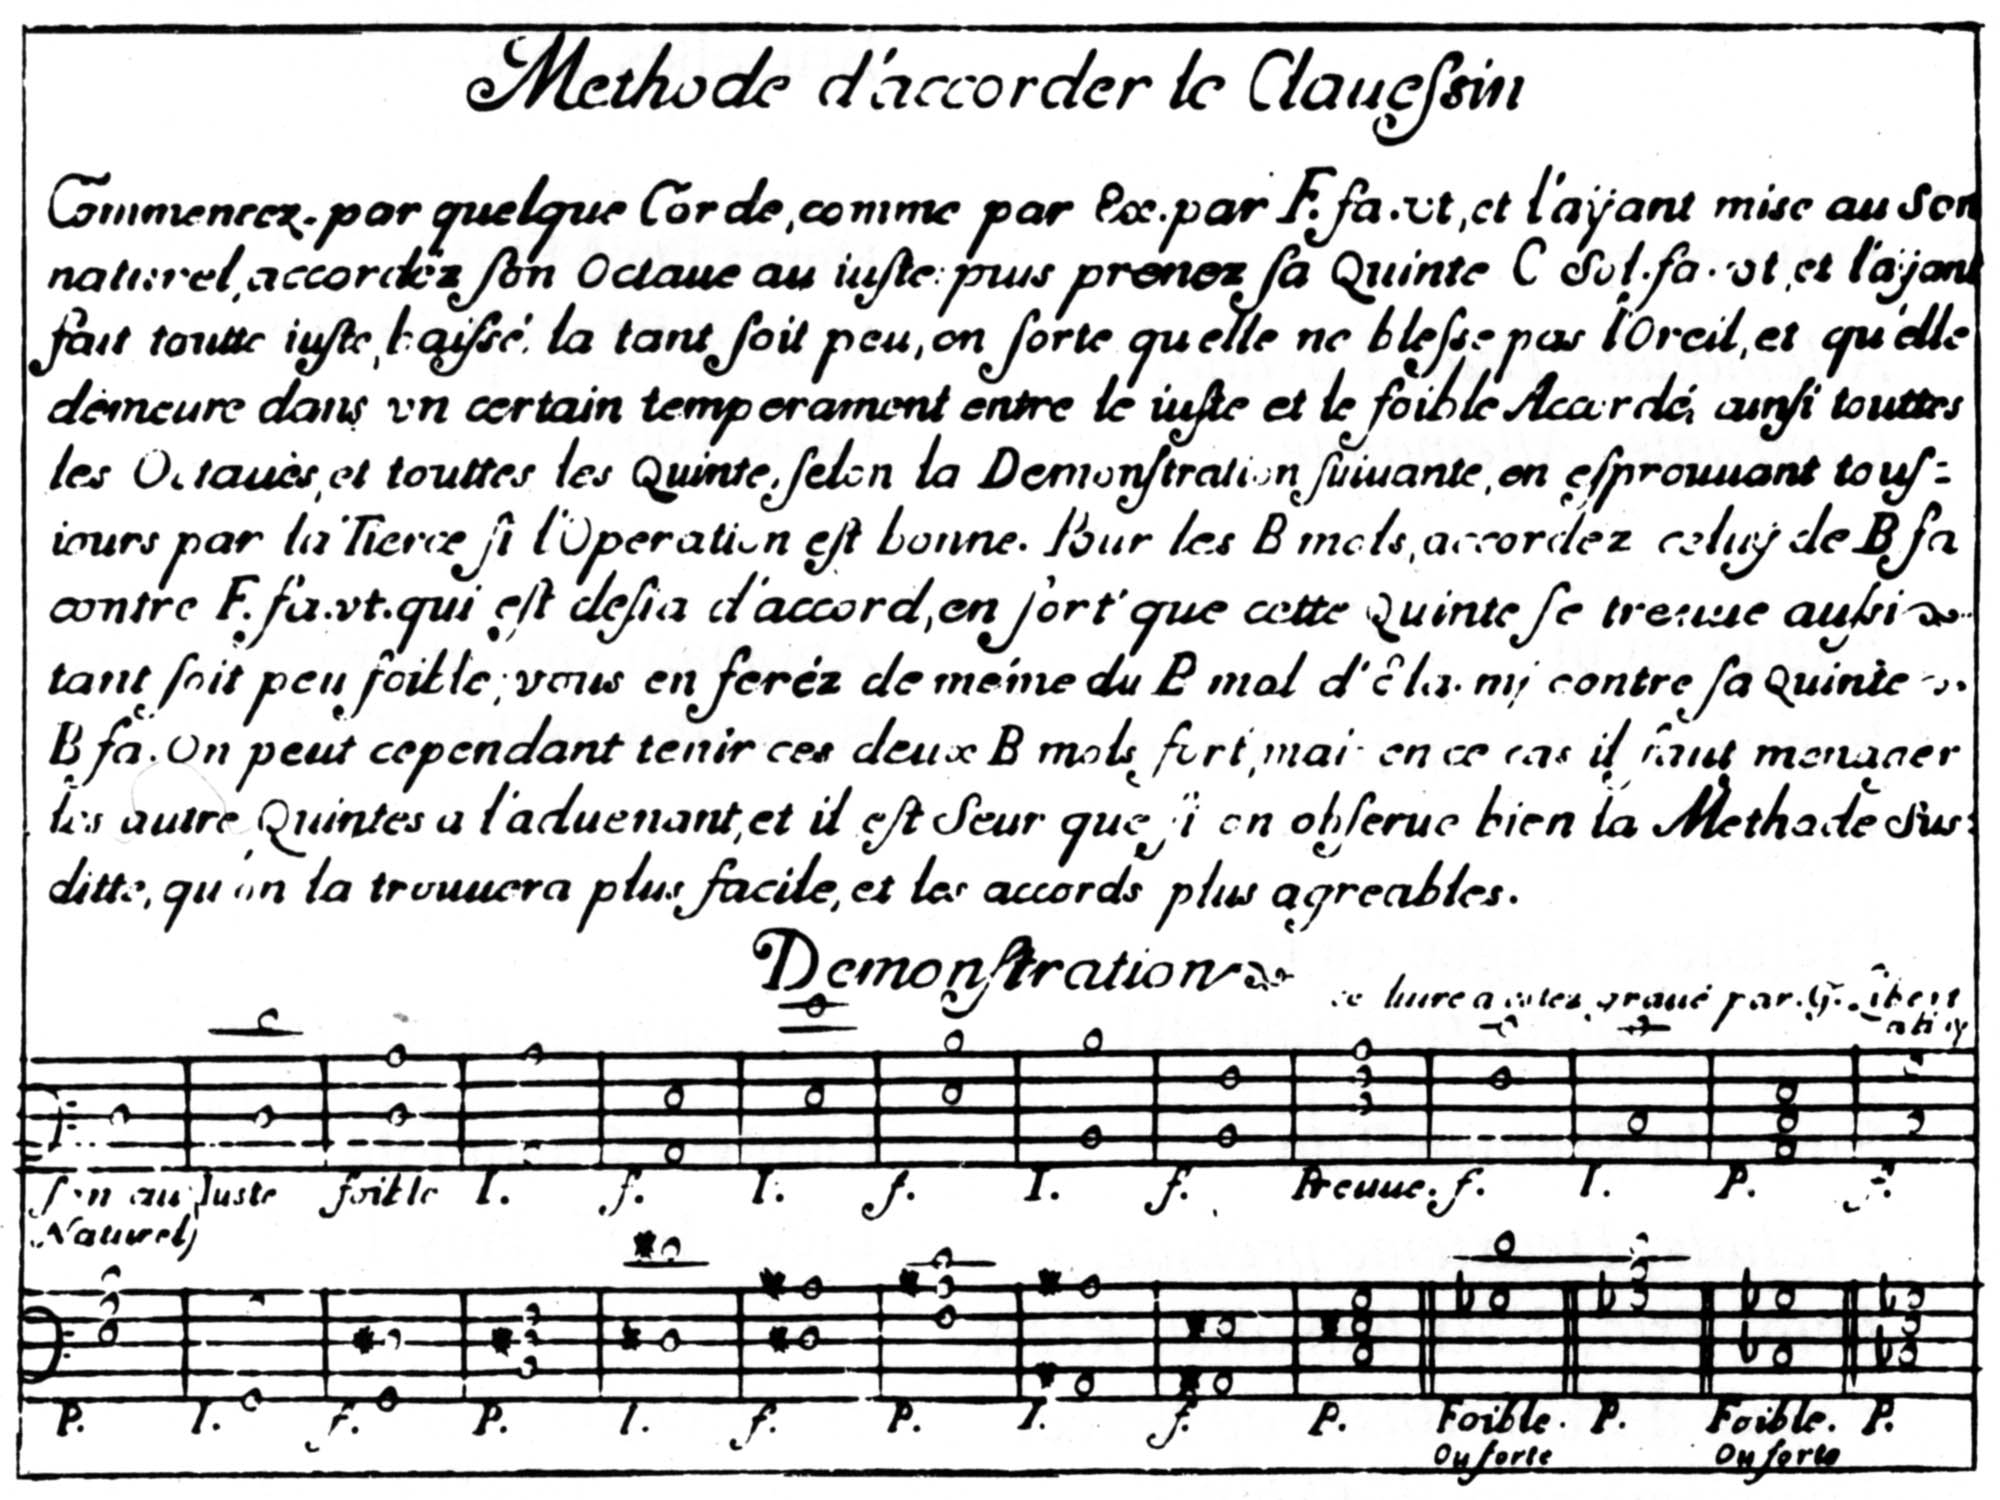 Methode d'accorder le Clauessin
Commencez par quelque Corde, comme par Ex. par F. fa. vt, et l'aÿant mise au Son
naturel, accordéz son Octaue au iuste: puis prenez sa Quinte C Sol. fa. vt, et l'aÿant
fait toutte iuste, baissé la tant soit peu, en sorte quelle ne blesse pas l'Oreil, et qu'elle
demeure dans vn certain temperament entre le iuste et le foible Accordé, ainsi touttes
les Octaues, et touttes les Quinte, selon la Demonstration suiuante, en esprouuant tous=
iours par la Tierce si l'Operation est bonne. Pour les B mols, accordez celuy de B fa
contre F. fa. vt. qui est desia d'accord, en sort' que cette Quinte se treuue aussi
tant soit peu foible; vous en feréz de méme du B mol d'ê la. mj contre sa Quinte
B fa. On peut cependant tenir ces deux B mols fort, mais en ce cas il faut menager
les autre Quintes a l'aduenant, et il est Seur que si on obserue bien la Methode Sus=
ditte, qu'on la trouuera plus facile, et les accords plus agreables.
Demonstration
ce liure a estez graué par
Son au Juste foible I. f. I. f. I. f. Preuue. f. I. P. f.
Naturel
P. I. f. P. I. f. P. I. f. P. Foible. P. Foible. P.
Ou forte Ou forte